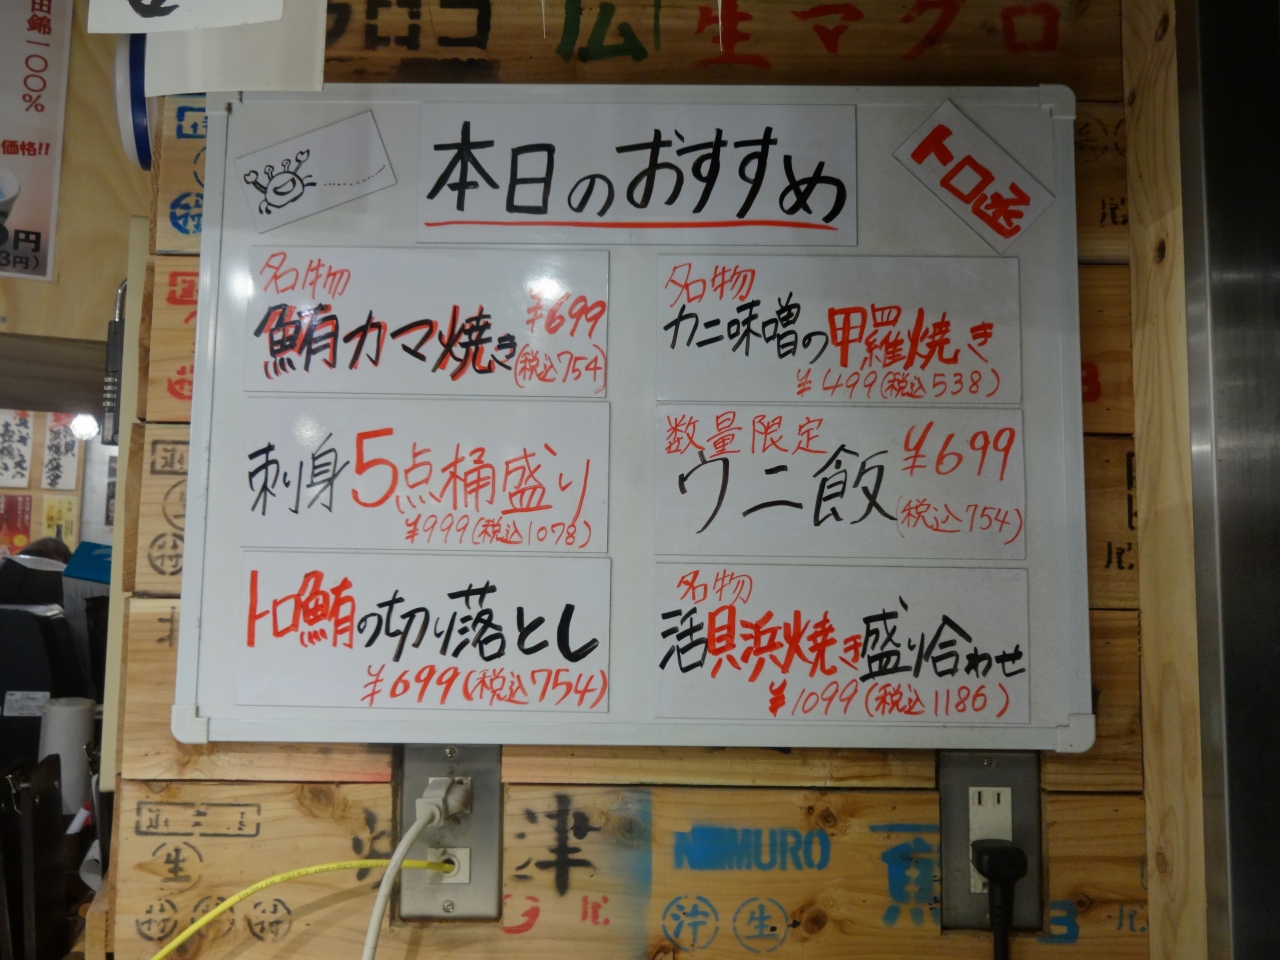 広 生マグロ
田錦一〇〇%
価格!!
円
3円)
本日のおすすめ
トロ函
名物
鮪カマ焼き ¥699
(税込754)
刺身5点桶盛り
¥999(税込1078)
トロ鮪の切り落とし
¥699(税込754)
名物
カニ味噌の甲羅焼き
¥499(税込538)
数量限定
ウニ飯 ¥699
(税込754)
名物
活貝浜焼き盛り合わせ
¥1099(税込1186)
尾
尾
生
津
尾
MURO
生
魚
3
尾